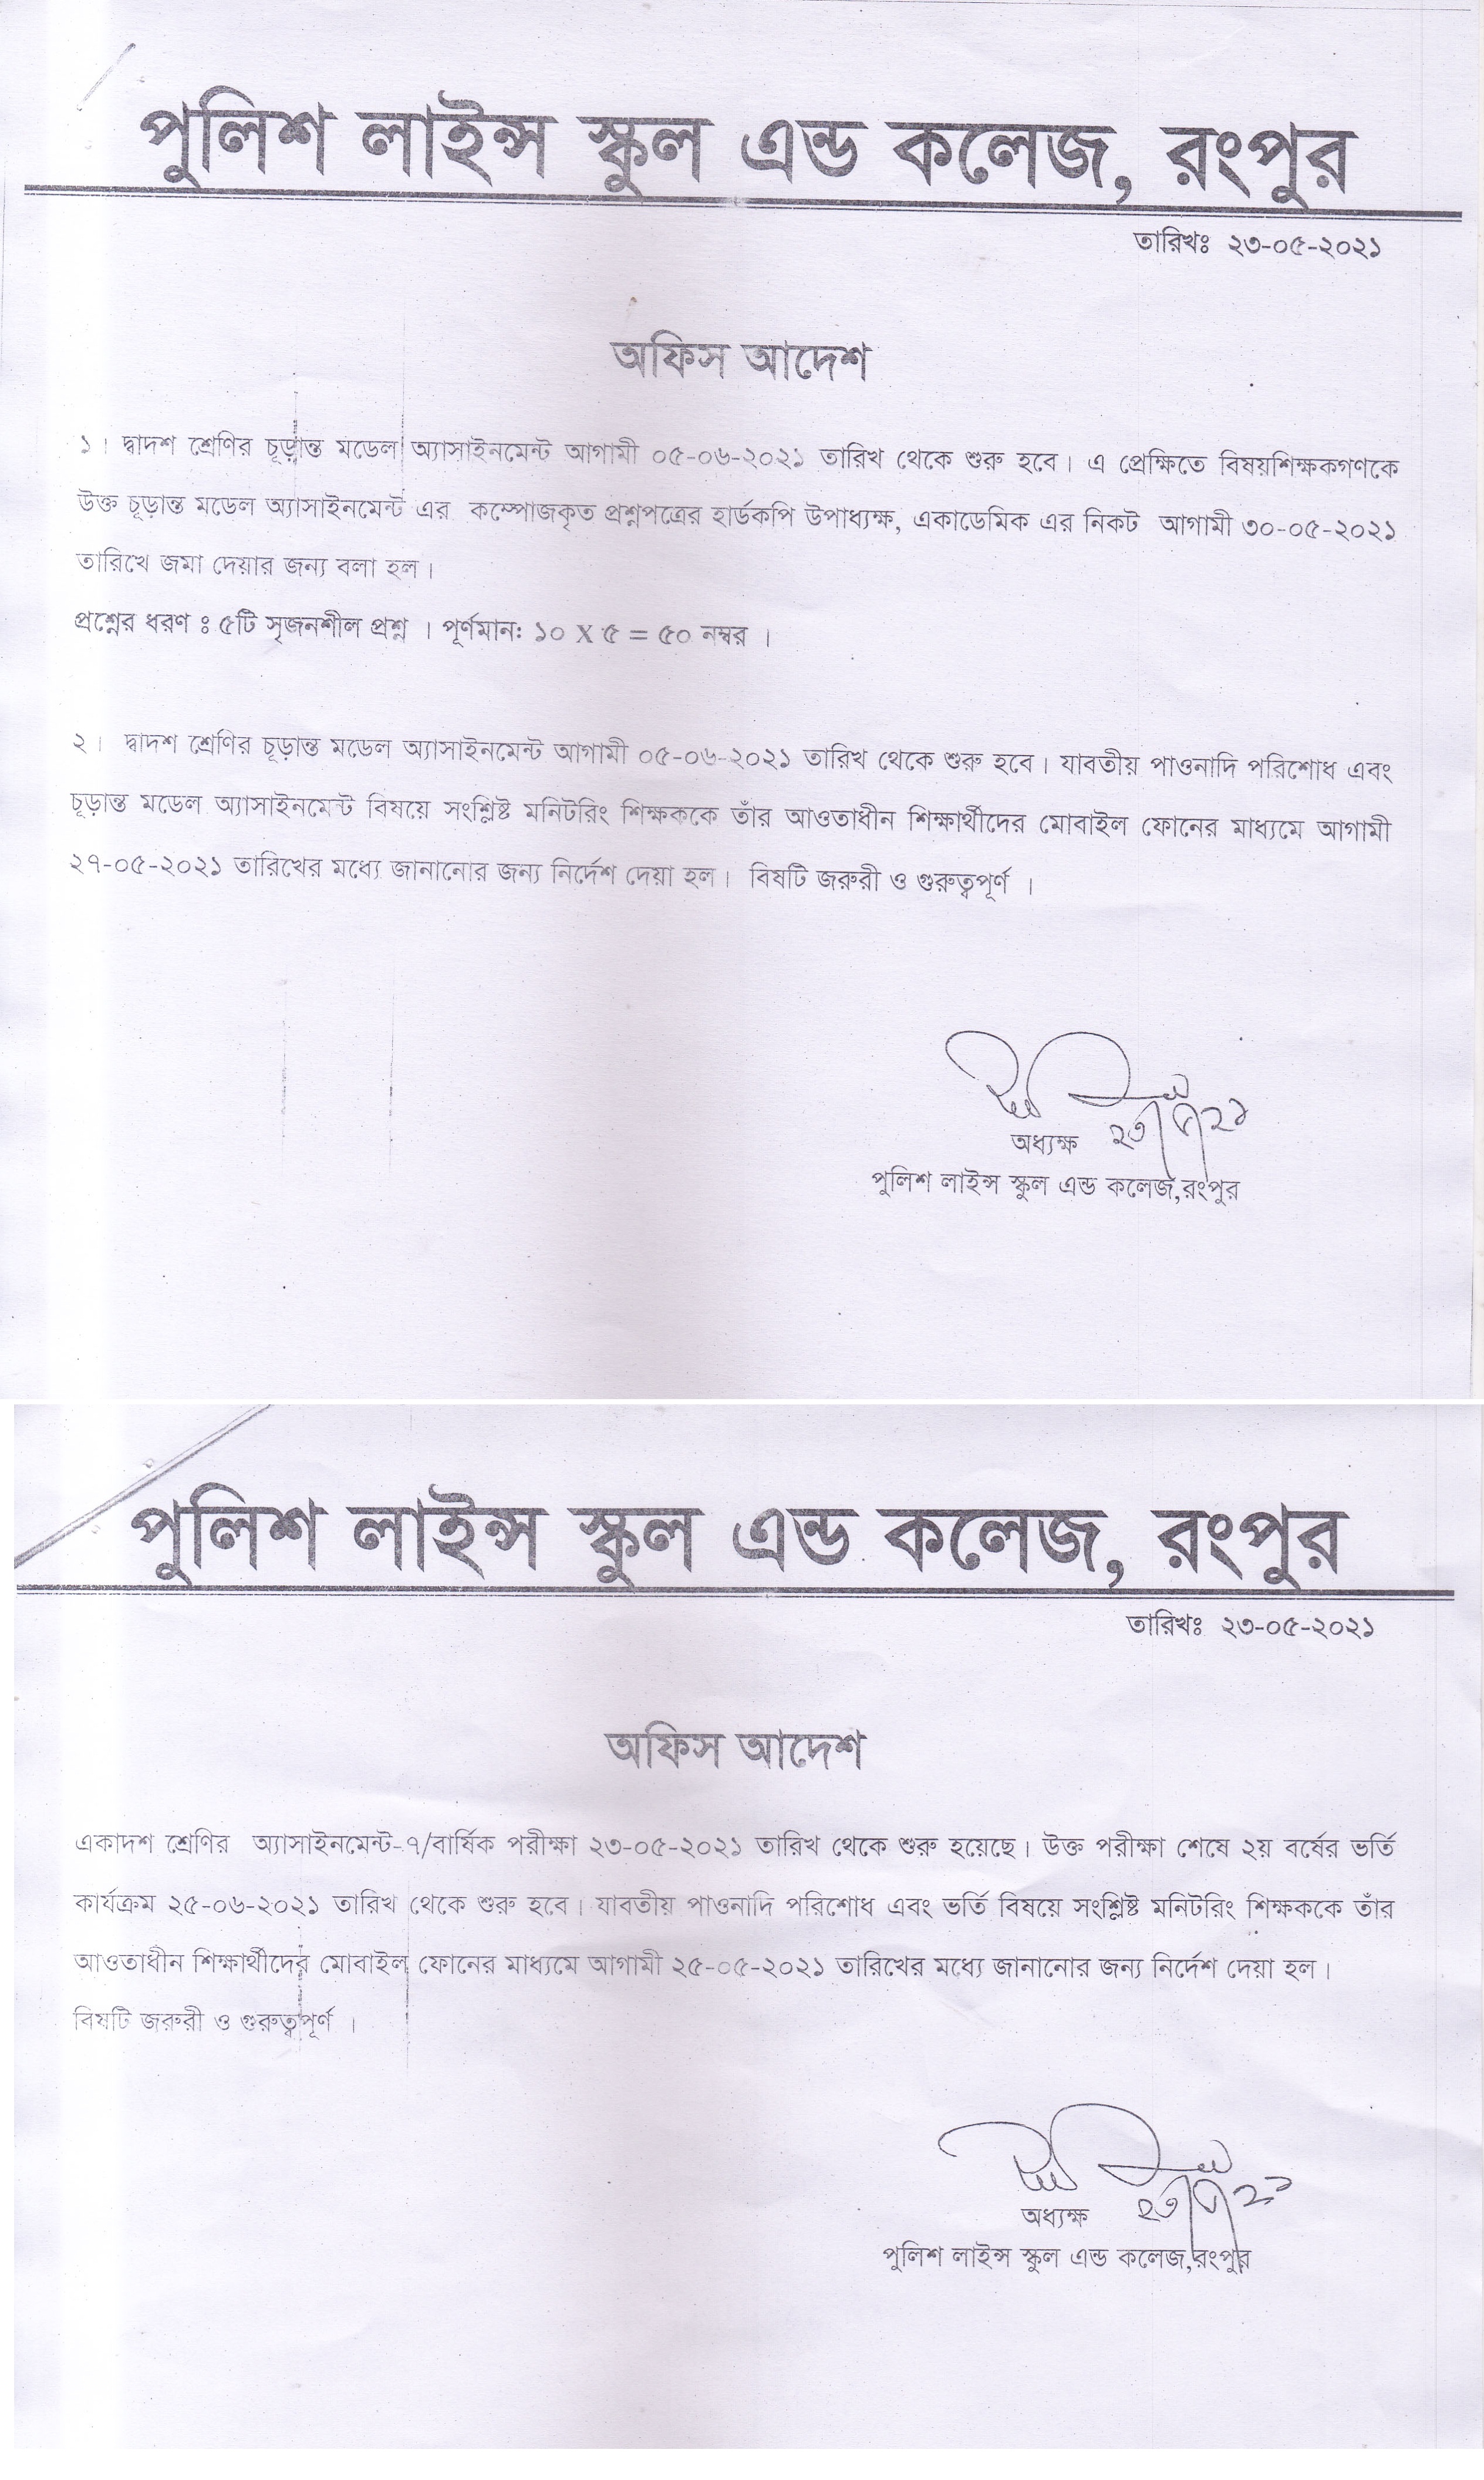 পুলিশ লাইন্স স্কুল এন্ড কলেজ, রংপুর
তারিখঃ ২৩-০৫-২০২১
অফিস আদেশ
১। দ্বাদশ শ্রেণির চূড়ান্ত মডেল অ্যাসাইনমেন্ট আগামী ০৫-০৬-২০২১ তারিখ থেকে শুরু হবে। এ প্রেক্ষিতে বিষয়শিক্ষকগণকে
উক্ত চূড়ান্ত মডেল অ্যাসাইনমেন্ট এর কম্পোজকৃত প্রশ্নপত্রের হার্ডকপি উপাধ্যক্ষ, একাডেমিক এর নিকট আগামী ৩০-০৫-২০২১
তারিখে জমা দেয়ার জন্য বলা হল।
প্রশ্নের ধরণ ঃ ৫টি সৃজনশীল প্রশ্ন । পূর্ণমান: ১০ X ৫ = ৫০ নম্বর ।
২। দ্বাদশ শ্রেণির চূড়ান্ত মডেল অ্যাসাইনমেন্ট আগামী ০৫-০৬-২০২১ তারিখ থেকে শুরু হবে। যাবতীয় পাওনাদি পরিশোধ এবং
চূড়ান্ত মডেল অ্যাসাইনমেন্ট বিষয়ে সংশ্লিষ্ট মনিটরিং শিক্ষককে তাঁর আওতাধীন শিক্ষার্থীদের মোবাইল ফোনের মাধ্যমে আগামী
২৭-০৫-২০২১ তারিখের মধ্যে জানানোর জন্য নির্দেশ দেয়া হল। বিষটি জরুরী ও গুরুত্বপূর্ণ ।
অধ্যক্ষ ২৩/৫/২১
পুলিশ লাইন্স স্কুল এন্ড কলেজ,রংপুর
পুলিশ লাইন্স স্কুল এন্ড কলেজ, রংপুর
তারিখঃ ২৩-০৫-২০২১
অফিস আদেশ
একাদশ শ্রেণির অ্যাসাইনমেন্ট-৭/বার্ষিক পরীক্ষা ২৩-০৫-২০২১ তারিখ থেকে শুরু হয়েছে। উক্ত পরীক্ষা শেষে ২য় বর্ষের ভর্তি
কার্যক্রম ২৫-০৬-২০২১ তারিখ থেকে শুরু হবে। যাবতীয় পাওনাদি পরিশোধ এবং ভর্তি বিষয়ে সংশ্লিষ্ট মনিটরিং শিক্ষককে তাঁর
আওতাধীন শিক্ষার্থীদের মোবাইল ফোনের মাধ্যমে আগামী ২৫-০৫-২০২১ তারিখের মধ্যে জানানোর জন্য নির্দেশ দেয়া হল।
বিষটি জরুরী ও গুরুত্বপূর্ণ ।
অধ্যক্ষ ২৩/৫/২১
পুলিশ লাইন্স স্কুল এন্ড কলেজ,রংপুর